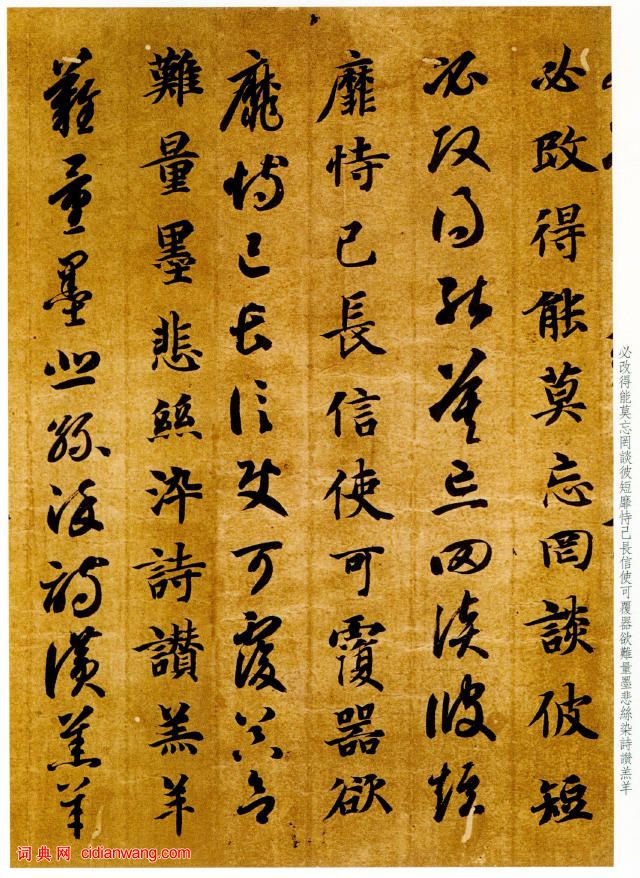 必改得能莫忘罔談彼短
必改得能莫忘罔談彼短
靡恃己長信使可覆器欲
靡恃己長信使可覆器欲
難量墨悲絲染詩讃羔羊
難量墨悲絲染詩讃羔羊
必改得能莫忘罔談彼短靡恃己長信使可覆器欲難量墨悲絲染詩讃羔羊
词典网 cidianwang.com